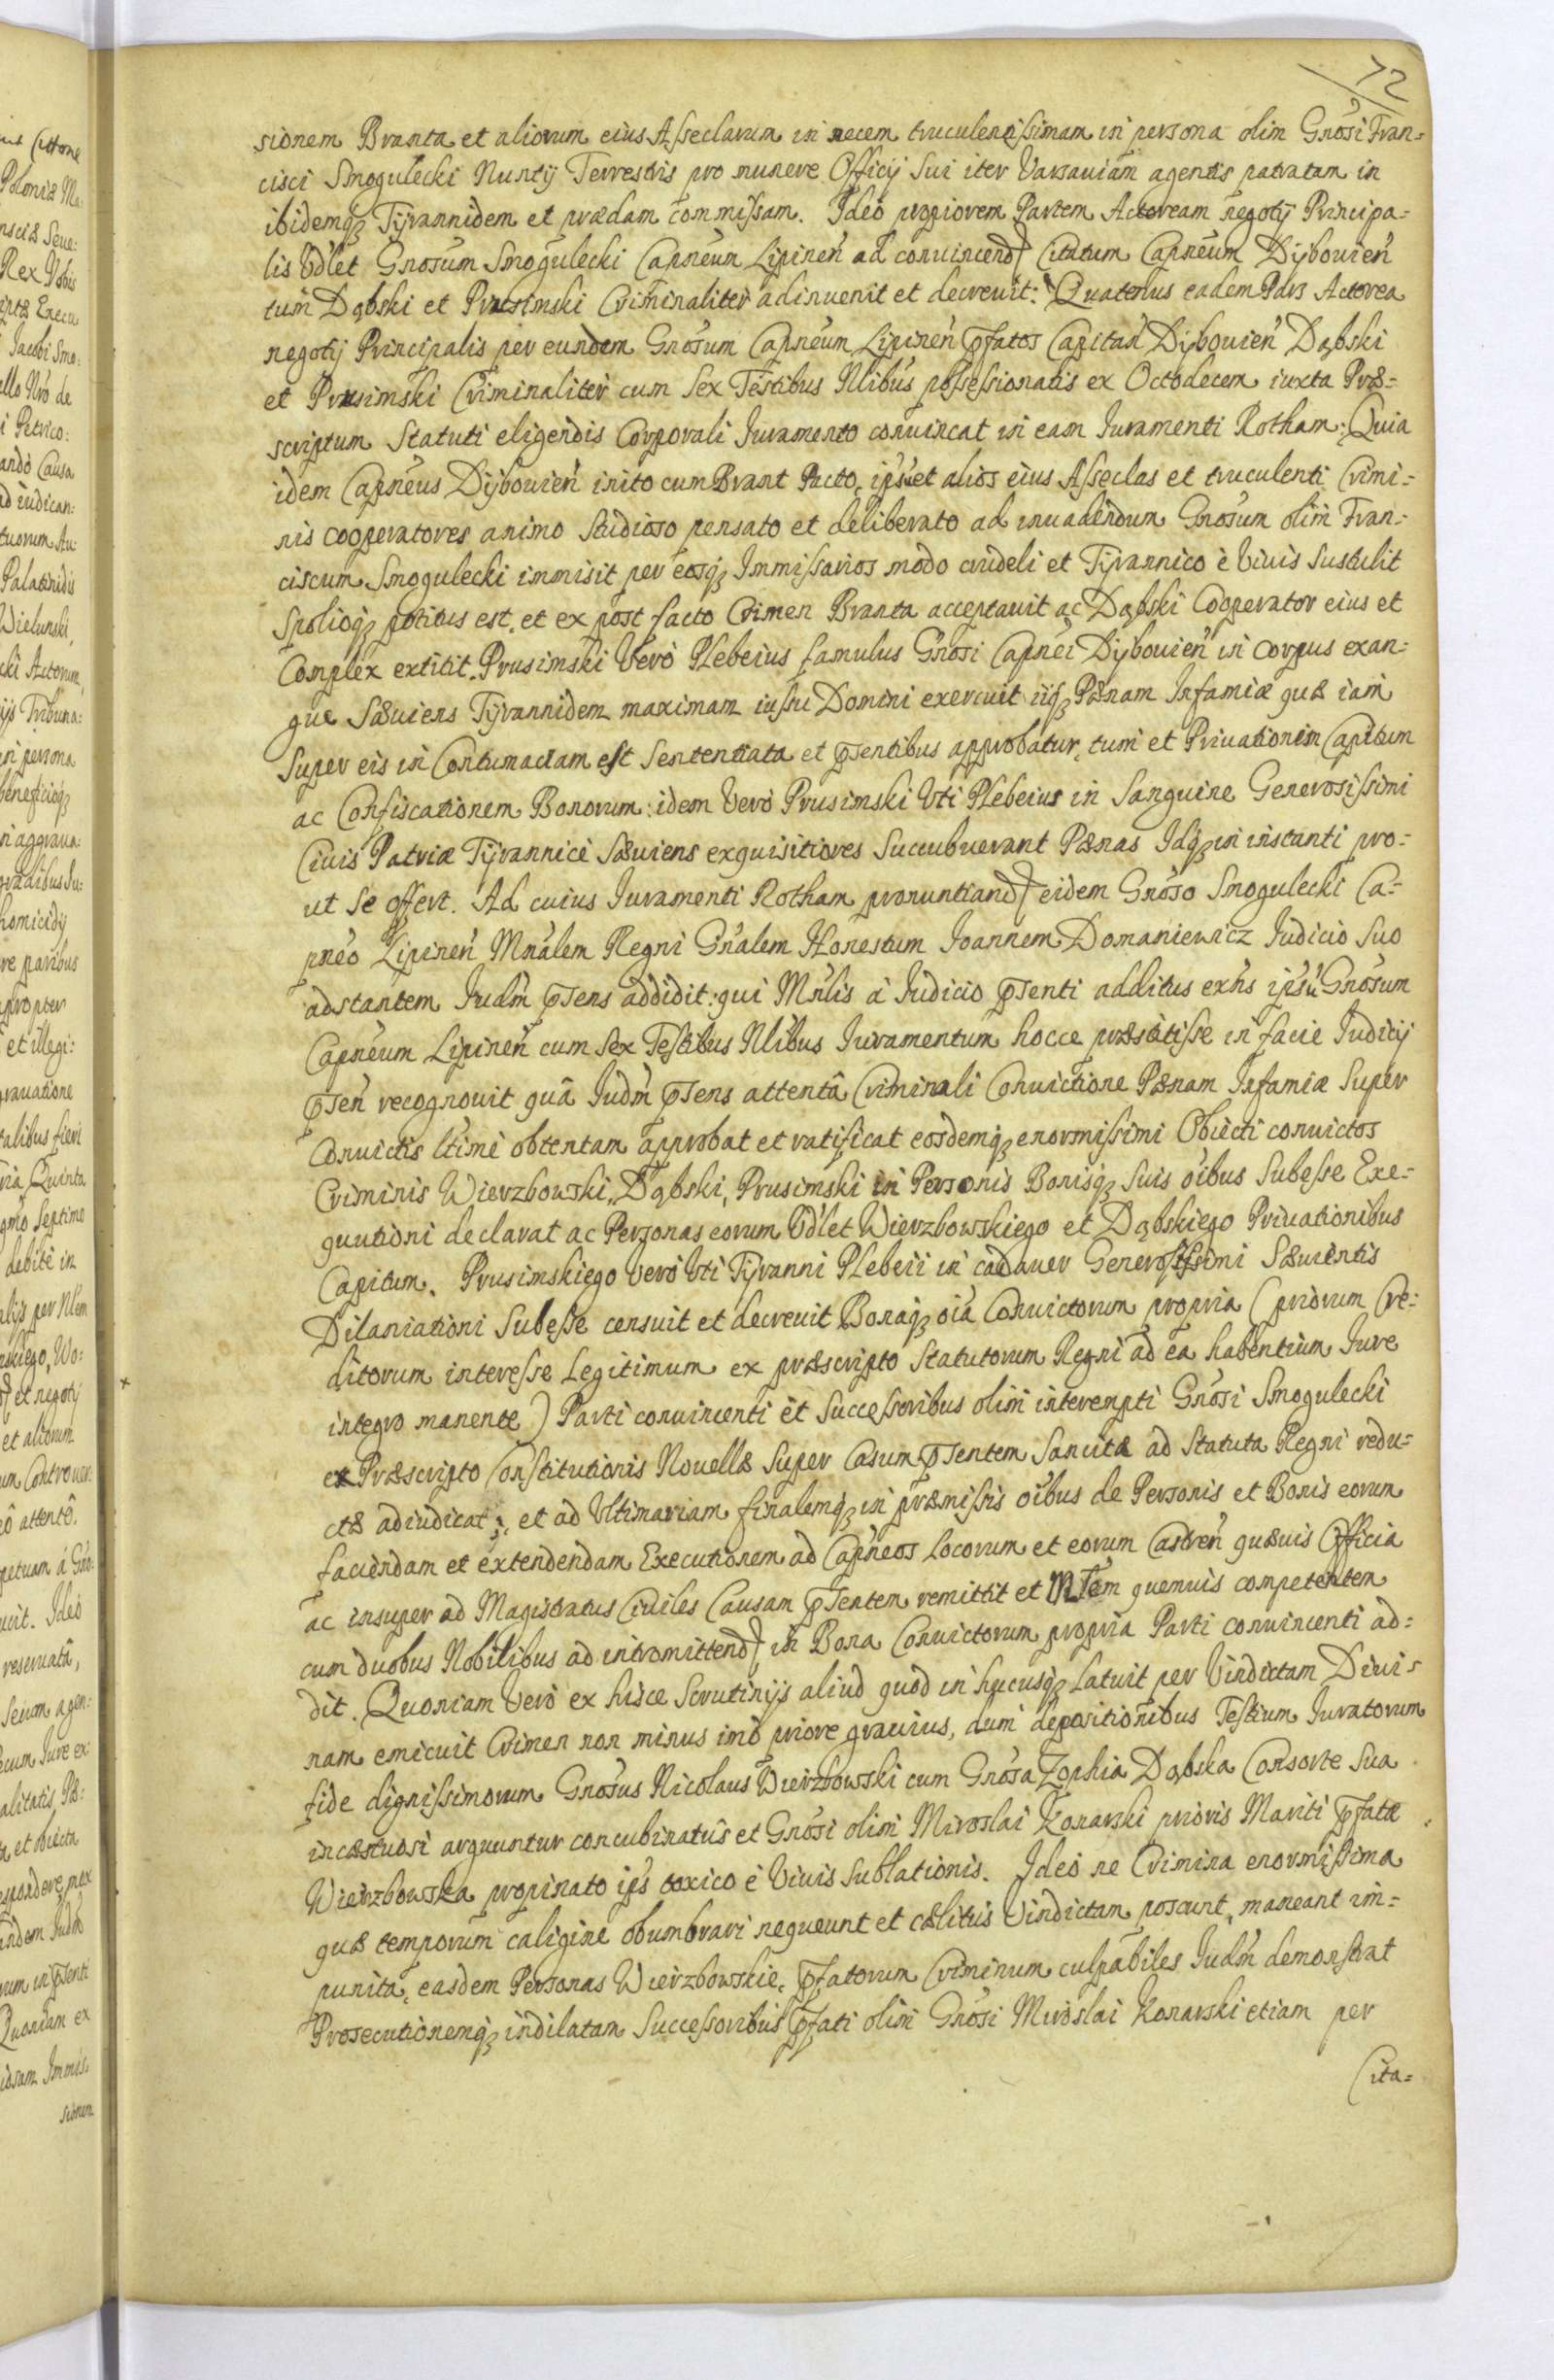 72
sionem Branta et aliorum eius Asseclarum in necem truculentissimam in persona olim Gnosi Fran=
cisci Smogulecki Nuntij Terrestris pro munere Officij sui iter Varsaviam agentis patratam in
ibidemq3 Tijrannidem et prædam commissam. Ideo propiorem Partem Actoream negotij Principa=
lis Vdlet Gnosum Smogulecki Capneum Lipinen ad convincend Citatum Capneum Dijbovien
tum Dąbski et Prusimski Criminaliter adinvenit et decrevit: Quatenus eadem Pars Actorea
negotij Principalis per eundem Gnosum Capneum Lipinen pfatos Capitan Dijbovien Dąbski
et Prusimski Criminaliter cum sex Testibus Nlibus possessionatis ex Octodecem iuxta Præ=
scriptum Statuti eligendis Corporali Iuramento convincat in eam Iuramenti Rotham: Quia
idem Capneus Dijbovien inito cum Brant Pacto, ipsu et alios eius Asseclas et truculenti Crimi=
nis cooperatores animo studioso pensato et deliberato ad invadendum Gnosum olim Fran=
ciscum Smogulecki immisit per eosq3 Immissarios modo crudeli et Tijrannico è vivis sustulit
Spolioq3 potitus est. et ex post facto Crimen Branta acceptavit ac Dąbski Cooperator eius et
Complex extitit. Prusimski Vero Plebeius famulus Gnosi Capnei Dijbovien in corpus exan=
gue Sæviens Tijrannidem maximam iussu Domini exercuit iiq3 Pænam Infamiæ quæ iam
super eis in Contumaciam est Sententiata et psentibus approbatur, tum et Privationem Capitum
ac Confiscationem Bonorum: idem Vero Prusimski Vti Plebeius in Sanguine Generosissimi
Civis Patriæ Tijrannice Sæviens exquisitiores Succubuerant Pænas Idq3 in instanti pro=
ut se offert. Ad cuius Iuramenti Rotham pronuntiand eidem Gnoso Smogulecki Ca=
pneo Lipinen Mnalem Regni Gnalem Honestum Ioannem Domaniewicz Iudicio suo
adstantem Iudm psens addidit: qui Mnlis à Iudicio psenti additus exhs ipsu Gnosum
Capneum Lipinen cum Sex Testibus Nlibus Iuramentum hocce præstitisse in facie Iudicij
psen recognovit quâ Iudm psens attentâ Criminali Convictione Pænam Infamiæ super
Convictis ltime obtentam approbat et ratificat eosdemq3 enormissimi Obiecti convictos
Criminis Wierzbowski, Dąbski, Prusimski in Personis Bonisq3 suis oibus subesse Exe=
quutioni declarat ac Personas eorum Vdlet Wierzbowskiego et Dąbskiego Privationibus
Capitum. Prusimskiego Vero Vti Tijranni Plebeii in cadaver Generosissimi Sævientis
Dilaniationi Subesse censuit et decrevit Bonaq3 oia Convictorum propria (priorum Cre=
ditorum interesse Legitimum ex præscripto Statutorum Regni ad ea habentium Iure
integro manente) Parti convincenti et Successoribus olim interempti Gnosi Smogulecki
ex Præscripto Constitutionis Novellæ Super Casum psentem Sancitæ ad Statuta Regni redu=
ctæ adiudicat; et ad Vltimariam finalemq3 in præmissis oibus de Personis et Bonis eorum
faciendam et extendendam Executionem ad Capneos Locorum et eorum Castren quævis Officia
ac insuper ad Magistratus Civiles Causam psentem remittit et quemvis competentem
cum duobus Nobilibus ad intromittend in Bona Convictorum propria Parti convincenti ad=
dit. Quoniam Vero ex hisce Scrutinijs aliud quod in hucusq3 Latuit per Vindictam Divi=
nam emicuit Crimen non minus imo priore gravius, dum depositionibus Testium Iuratorum
fide dignissimorum Gnosus Nicolaus Wierzbowski cum Gnosa Zophia Dąbska Consorte Sua
incæstuosi arguuntur concubinatûs et Gnosi olim Miroslai Konarski prioris Mariti pfatæ
Wierzbowska propinato ips toxico è Vivis Sublationis. Ideo ne Crimina enormissima
quæ temporum caligine obumbrari nequeunt et cælitus Vindictam poscunt, maneant im=
punita, easdem Personas Wierzbowskie, pfatorum Criminum culpabiles Iudm demonstrat
Prosecutionemq3 indilatam Successoribus pfati olim Gnosi Miroslai Konarski etiam per
Cita=